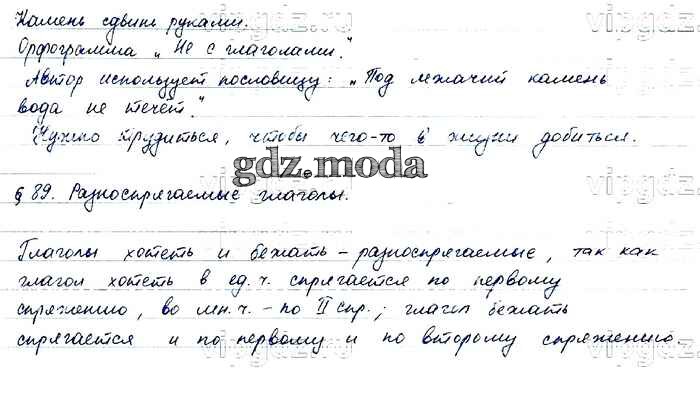 Камень сдвинь руками.
Орфограмма „Не с глаголами."
Автор использует пословицу: „Под лежачий камень
вода не течёт."
Нужно трудиться, чтобы чего-то в жизни добиться.
gdz.moda
§ 89. Разноспрягаемые глаголы.
Глаголы хотеть и бежать – разноспрягаемые, так как
глагол хотеть в ед. ч. спрягается по первому
спряжению, во мн. ч. – по II спр.; глагол бежать
спрягается и по первому и по второму спряжению.